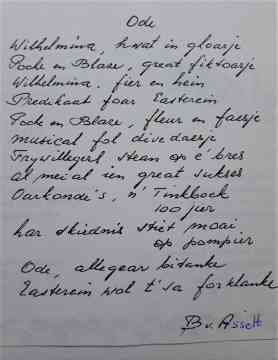 Ode
Wilhelmina, hwat in gloarje
Pock en Blaze, great fiktoarje
Wilhelmina. fier en hein
Predikaat foar Easterein
Pock en Blaze, fleur en faesje
musical fol divedaesje
Frijwillegers, stean op 'e bres
al mei al in great sukses
Oarkonde's, n' Tinkboek
100 jier
har skiednis stiet moai
op pompier
Ode, allegear bitanke
Easterein wol t' sa forklanke
B v. Asselt